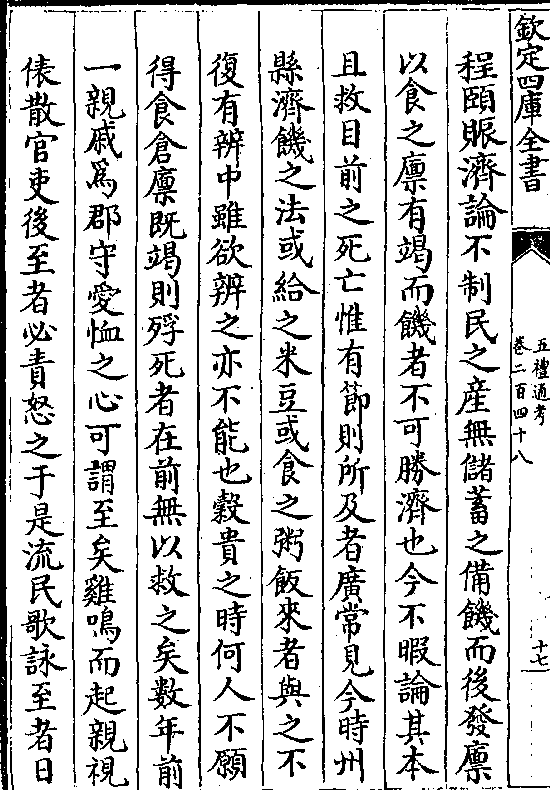 欽定四庫全書
五禮通考
卷二百四十八
十七
程頤賑濟論不制民之産無儲蓄之備饑而後發廪
以食之廪有竭而饑者不可勝濟也今不暇論其本
且救目前之死亡惟有節則所及者廣常見今時州
縣濟饑之法或給之米豆或食之粥飯來者與之不
復有辨中雖欲辨之亦不能也穀貴之時何人不願
得食倉廪既竭則殍死者在前無以救之矣數年前
一親戚爲郡守愛恤之心可謂至矣雞鳴而起親視
俵散官吏後至者必責怒之于是流民歌詠至者日